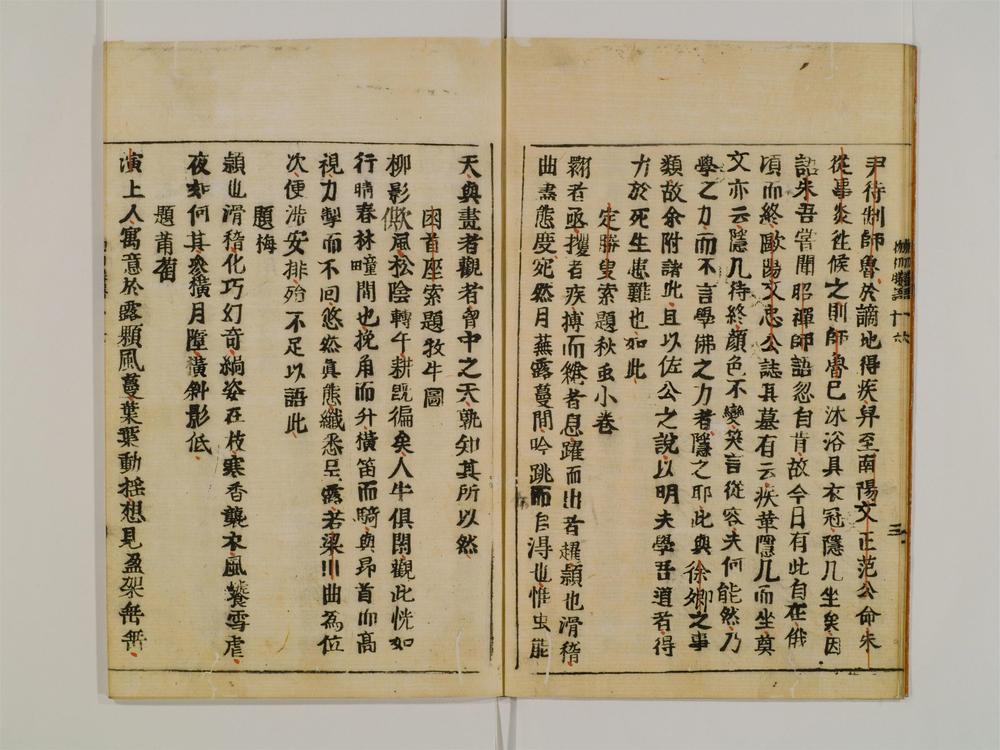 尹待制師魯於謫地得疾舁至南陽文正范公命朱
從事炎徃候之則師魯已沐浴具衣冠隱几坐矣因
詔朱吾嘗聞昭禪師語忽自肯故今日有此自在俄
頃而終歐陽文忠公誌其墓有云疾革隱几而坐奠
文亦云隱几待終顔色不變笑言從容夫何能然乃
學之力而不言學佛之力者隱之耶此與徐卿之事
類故余附諸此且以佐公之說以明夫學吾道者得
力於死生患難也如此
定勝叟索題秋虫小卷
翾者亟攫者疾搏而縱者息躍而出者趯顙也滑稽
曲盡態度宛然月蕪露蔓間吟跳而自得也惟虫能
天與畫者觀者會中之天孰知其所以然
困首座索題牧牛圖
柳影欺風松陰轉午耕旣徧矣人牛俱閑觀此恍如
行晴春林疃間也挽角而升橫笛而騎與昂首而高
視力掣而不回悠然眞態纖悉呈露若梁川曲爲位
次便涉安排殆不足以語此
題梅
顙也滑稽化巧幻奇綃姿在枝寒香襲衣風饕雪虐
夜如何其參橫月墮橫斜影低
題莆萄
演上人寓意於露顆風蔓葉葉動揺想見盈架無無
十六
三